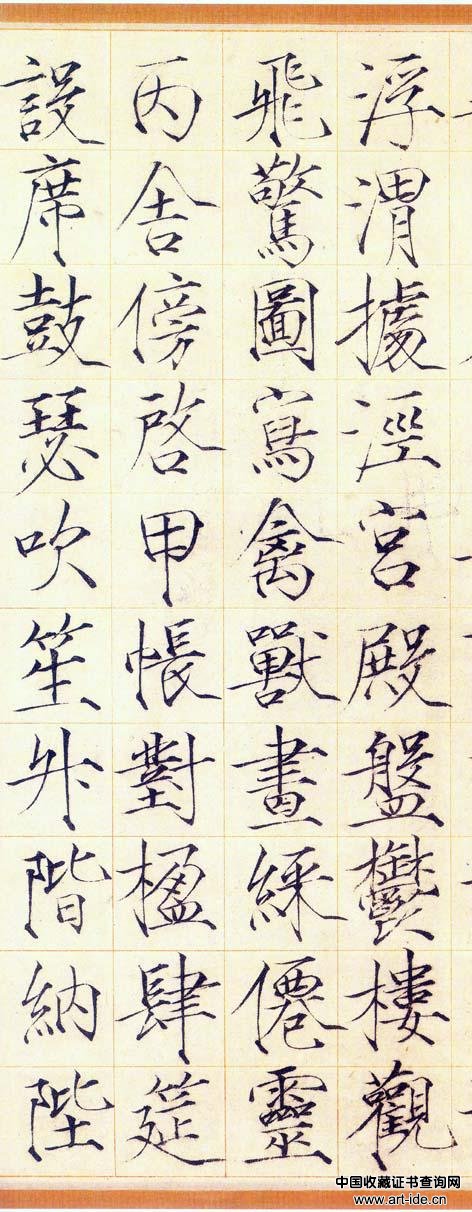 浮渭據涇宮殿盤鬱樓觀
飛驚圖寫禽獸畫綵僊靈
丙舍傍啓甲帳對楹肆筵
設席鼓瑟吹笙升階納陛
中国收藏证书查询网
www.art-ide.cn